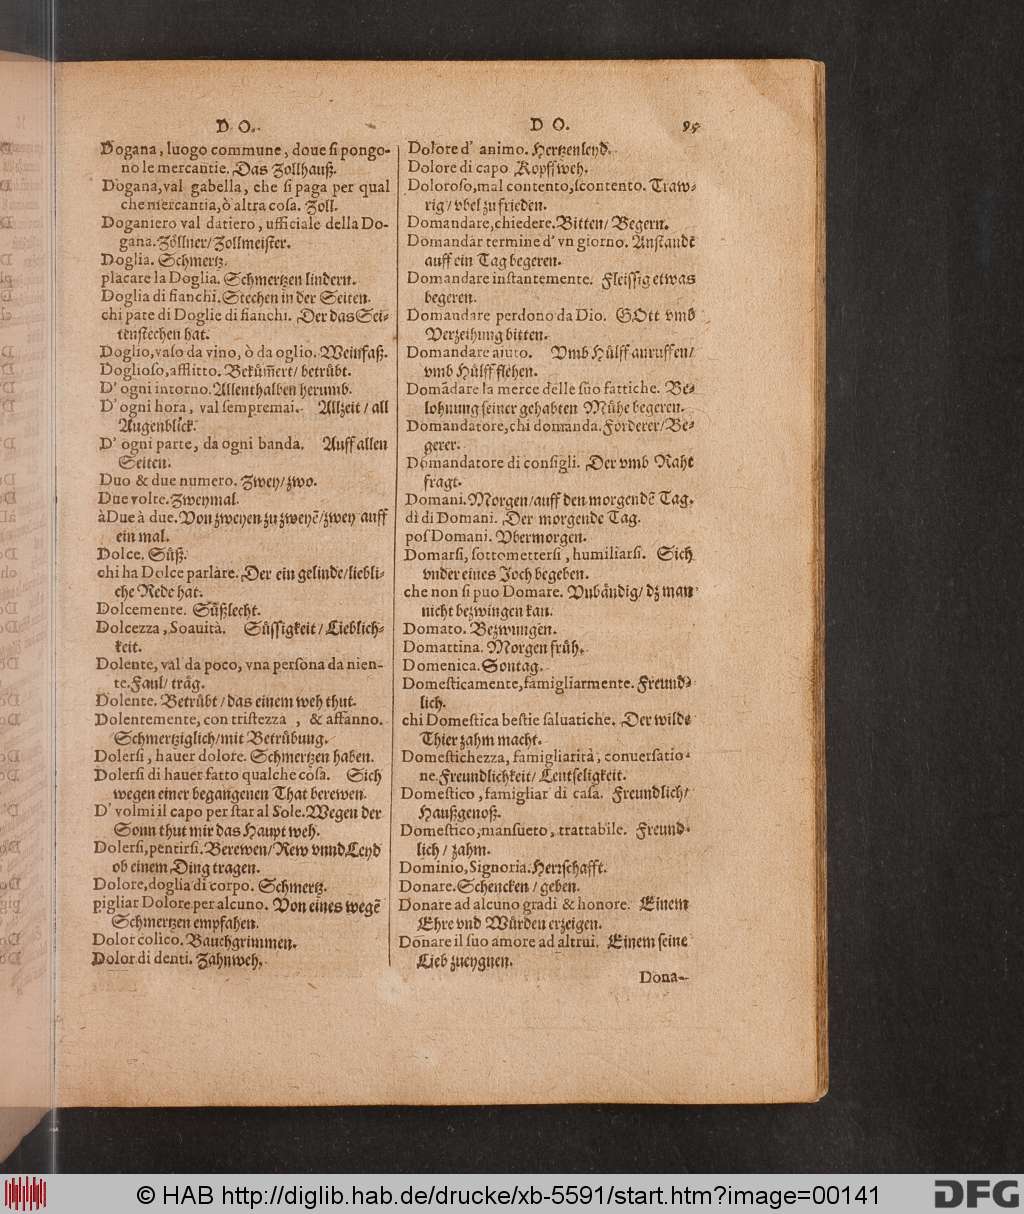 D O.
Dogana, luogo commune, doue si pongo-
no le mercantie. Das Zollhauß.
Dogana, val gabella, che si paga per qual
che mercantia, ò altra cosa. Zoll.
Doganiero val datiero, ufficiale della Do-
gana. Zöllner/ Zollmeister.
Doglia. Schmertz.
placare la Doglia. Schmertzen lindern.
Doglia di fianchi. Stechen in der Seiten.
chi pate di Doglie di fianchi. Der das Sei-
tenstechen hat.
Doglio, vaso da vino, ò da oglio. Weinfaß.
Doglioso, afflitto. Bekům̃ert/ betrůbt.
D' ogni intorno. Allenthalben herumb.
D' ogni hora, val sempremai. Allzeit / all
Augenblick.
D' ogni parte, da ogni banda. Auff allen
Seiten.
Duo & due numero. Zwey/ zwo.
Due volte. Zweymal.
à Due à due. Von zweyen zu zweyẽ/ zwey auff
ein mal.
Dolce. Sůß.
chi ha Dolce parlare. Der ein gelinde/ liebli-
che Rede hat.
Dolcemente. Sůßlecht.
Dolcezza, Soauità. Sůssigkeit / Lieblich-
keit.
Dolente, val da poco, vna persona da nien-
te. Faul/ tråg.
Dolente. Betrůbt / das einem weh thut.
Dolentemente, con tristezza , & affanno.
Schmertziglich/ mit Betrůbung.
Dolersi, hauer dolore. Schmertzen haben.
Dolersi di hauer fatto qualche cosa. Sich
wegen einer begangenen That berewen.
D' volmi il capo per star al Sole. Wegen der
Sonn thut mir das Haupt weh.
Dolersi, pentirsi. Berewen/ Rew vnnd Leyd
ob einem Ding tragen.
Dolore, doglia di corpo. Schmertz.
pigliar Dolore per alcuno. Von eines wegẽ
Schmertzen empfahen.
Dolor colico. Bauchgrimmen.
Dolor di denti. Zahnweh.
D O. 95
Dolore d' animo. Hertzenleyd.
Dolore di capo Kopffweh.
Doloroso, mal contento, scontento. Traw-
rig / vbel zu frieden.
Domandare, chiedere. Bitten/ Begern.
Domandar termine d' vn giorno. Anstandt
auff ein Tag begeren.
Domandare instantemente. Fleissig etwas
begeren.
Domandare perdono da Dio. GOtt vmb
Verzeihung bitten.
Domandare aiuto. Vmb Hůlff anruffen/
vmb Hůlff flehen.
Domãdare la merce delle suo fattiche. Be-
lohnung seiner gehabten Můhe begeren.
Domandatore, chi domanda. Forderer/ Be-
gerer.
Domandatore di consigli. Der vmb Raht
fragt.
Domani. Morgen/ auff den morgendẽ Tag.
dì di Domani. Der morgende Tag.
pos Domani. Vbermorgen.
Domarsi, sottomettersi, humiliarsi. Sich
vnder eines Joch begeben.
che non si puo Domare. Vnbåndig/ dz man
nicht bezwingen kan.
Domato. Bezwungen.
Domattina. Morgen frůh.
Domenica. Sontag.
Domesticamente, famigliarmente. Freund-
lich.
chi Domestica bestie saluatiche. Der wilde
Thier zahm macht.
Domestichezza, famigliarità, conuersatio-
ne. Freundlichkeit/ Leutseligkeit.
Domestico, famigliar di casa. Freundlich/
Haußgenoß.
Domestico, mansueto, trattabile. Freund-
lich / zahm.
Dominio, Signoria. Herrschafft.
Donare. Schencken / geben.
Donare ad alcuno gradi & honore. Einem
Ehre vnd Wůrden erzeigen.
Donare il suo amore ad altrui. Einem seine
Lieb zueygnen.
Dona-
© HAB http://diglib.hab.de/drucke/xb-5591/start.htm?image=00141
DFG